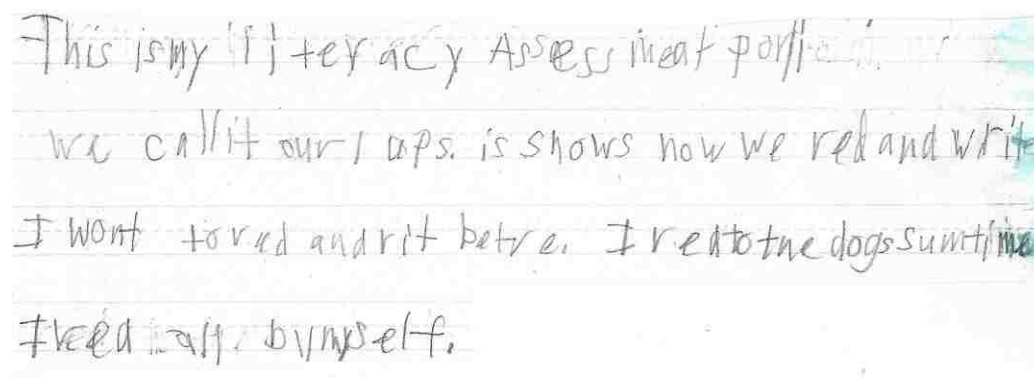 This is my literacy Assessment
we call it our laps. is shows how we red and write
I wont to red and rit betre. I red to the dogs sumtime
I reed all bymyself.